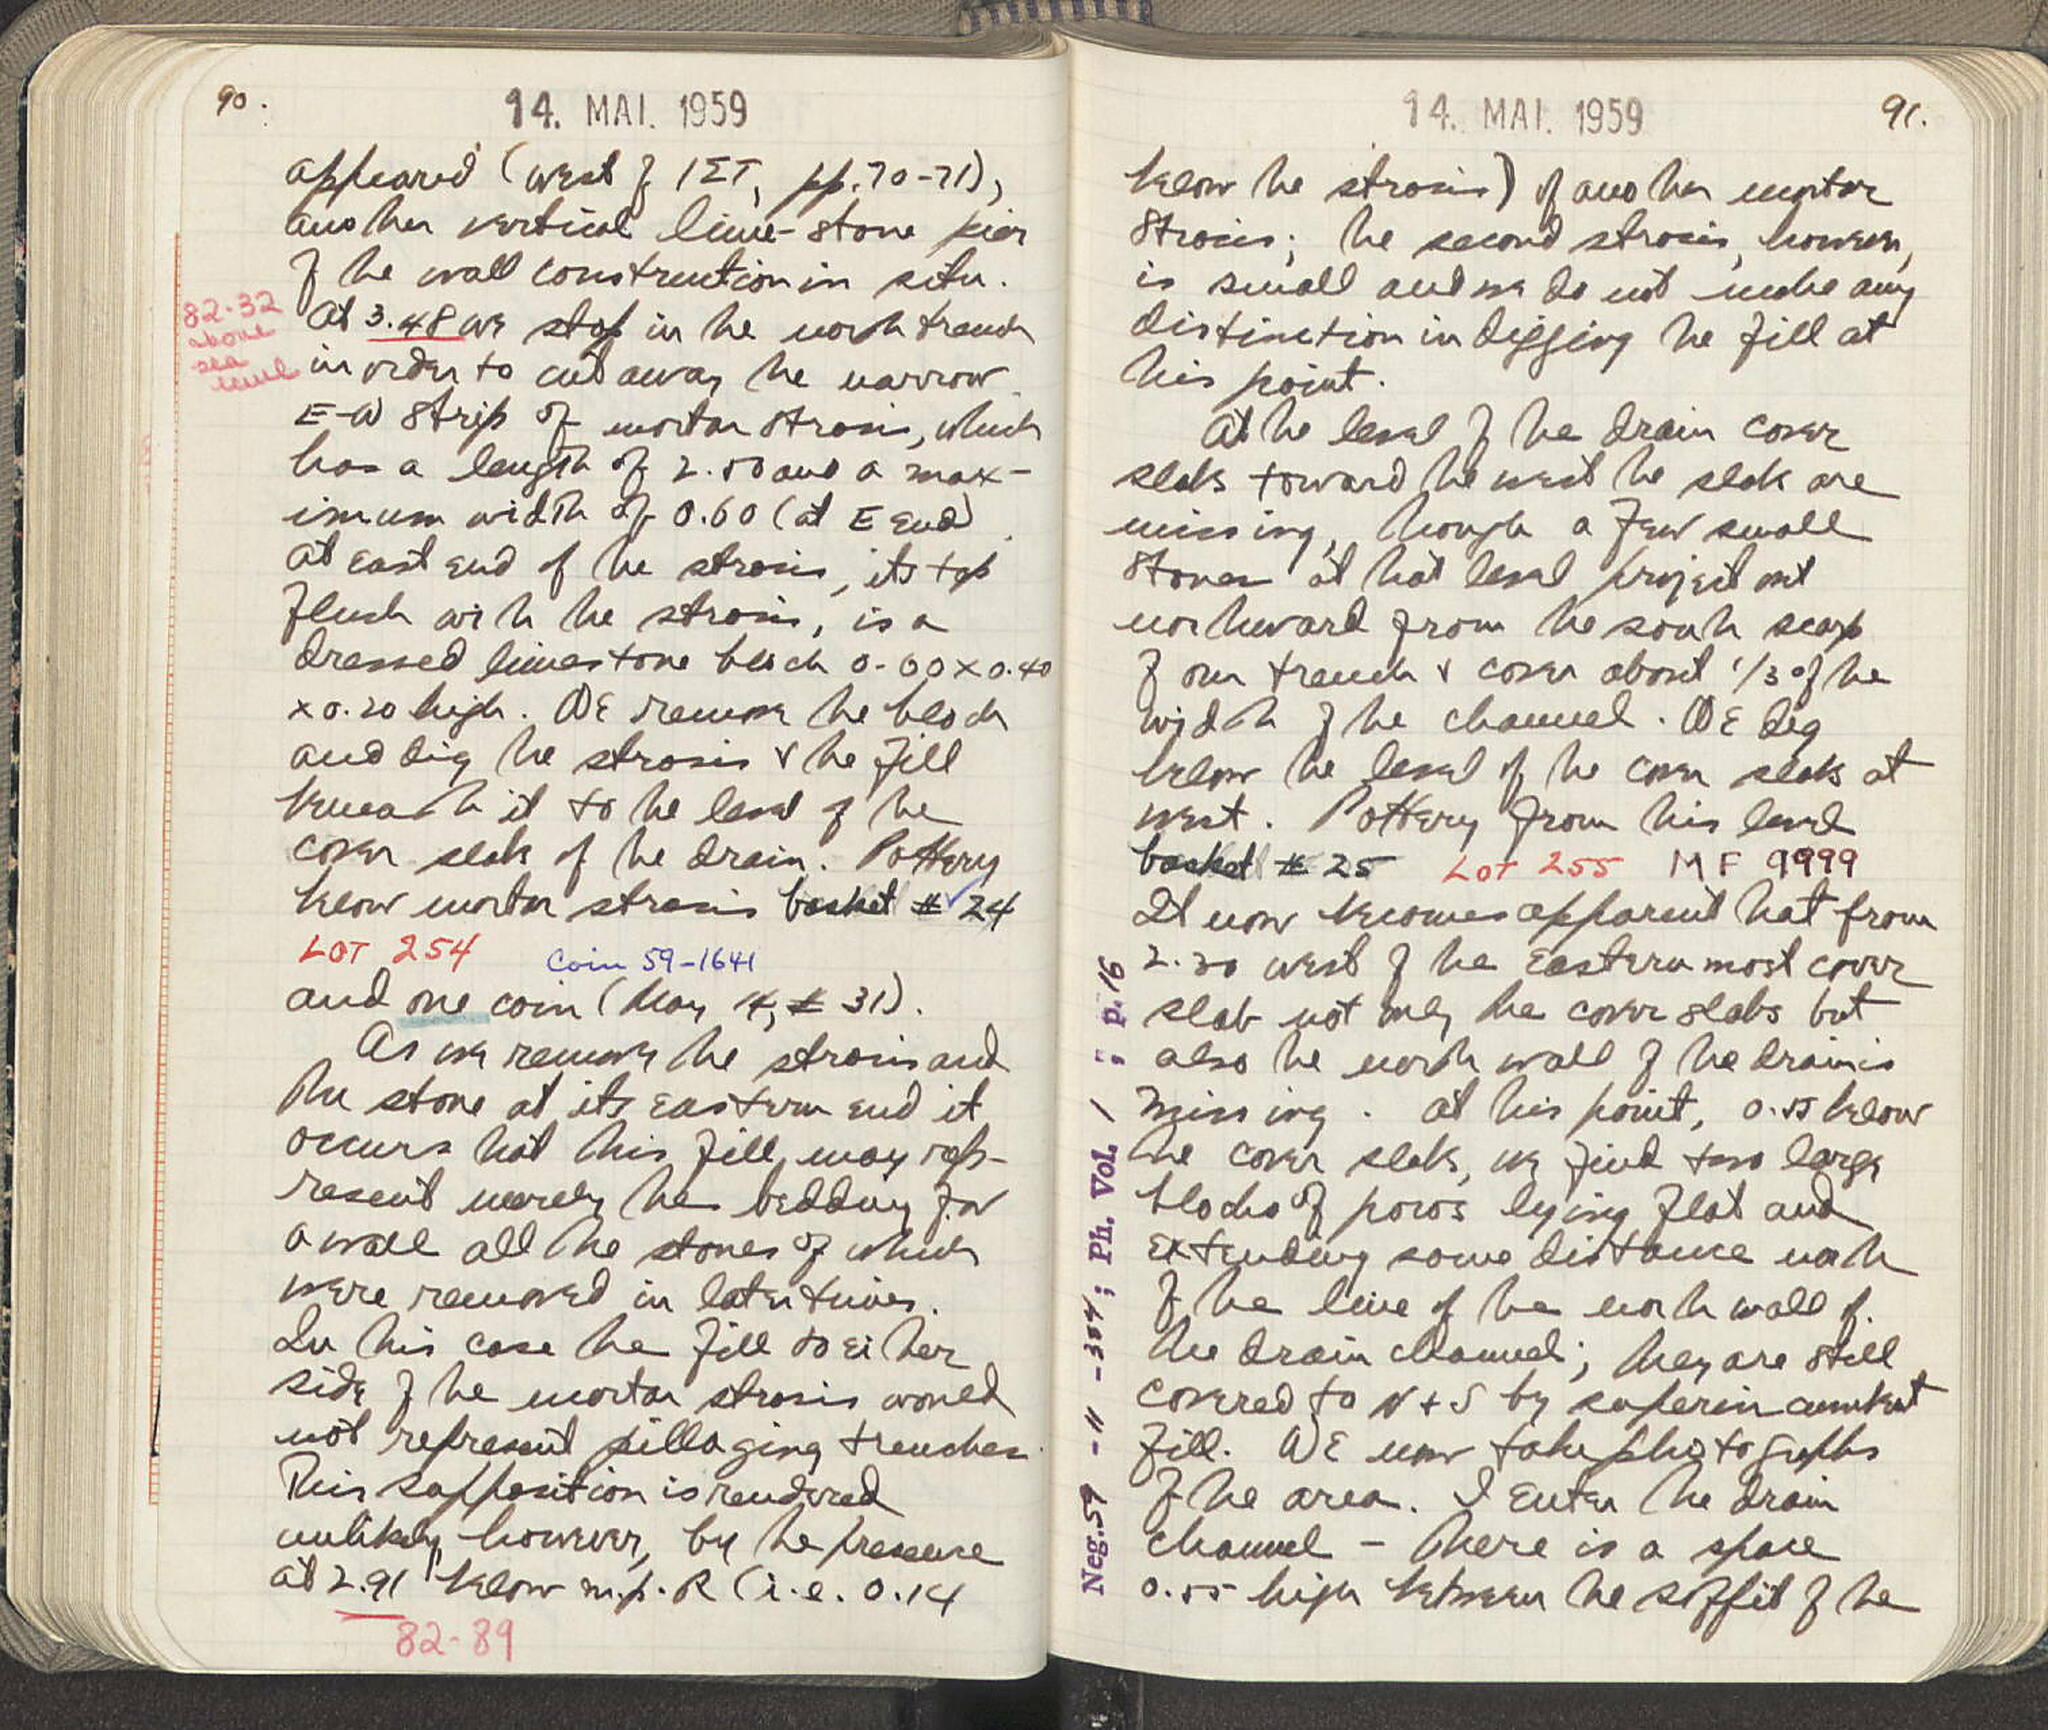 90.
14. MAI. 1959
appeared (west of 1ΣΤ, pp. 70-71),
another vertical lime-stone pier
of the wall construction in situ.
82.32
above
sea
level
At 3.48 we stop in the north trench
in order to cut away the narrow
E-W strip of mortar strosis, which
has a length of 2.50 and a max-
imum width of 0.60 (at E end).
At east end of the strosis, its top
flush with the strosis, is a
dressed limestone block 0.60 x 0.40
x 0.20 high. We remove the block
and dig the strosis & the fill
beneath it to the level of the
cover slabs of the drain. Pottery
below mortar strosis basket # 24
LOT 254 Coin 59-1641
and one coin (May 14, # 31).
As we remove the strosis and
the stone at its eastern end it
occurs that this fill may rep-
resent merely the bedding for
a wall all the stones of which
were removed in later times.
In this case the fill to either
side of the mortar strosis would
not represent pillaging trenches.
This supposition is rendered
unlikely, however, by the presence
at 2.91 below m.p. R (i.e. 0.14
82.89
14. MAI. 1959
91.
below the strosis) of another mortar
strosis; the second strosis, however,
is small and we do not make any
distinction in digging the fill at
this point.
At the level of the drain cover
slabs toward the west the slabs are
missing, though a few small
stones at that level project out
northward from the south scarp
of our trench & cover about 1/3 of the
width of the channel. We dig
below the level of the cover slabs at
west. Pottery from this level
basket # 25 LOT 255 MF 9999
It now becomes apparent that from
2.20 west of the easternmost cover
slab not only the cover slabs but
also the north wall of the drain is
missing. At this point, 0.55 below
the cover slabs, we find two large
blocks of poros lying flat and
extending some distance north
of the line of the north wall of
the drain channel; they are still
covered to N + S by superincumbent
fill. We now take photographs
of the area. I enter the drain
channel – there is a space
0.55 high between the soffit of the
Neg. 59 - 11 - 334; Ph. Vol. 1; p. 16